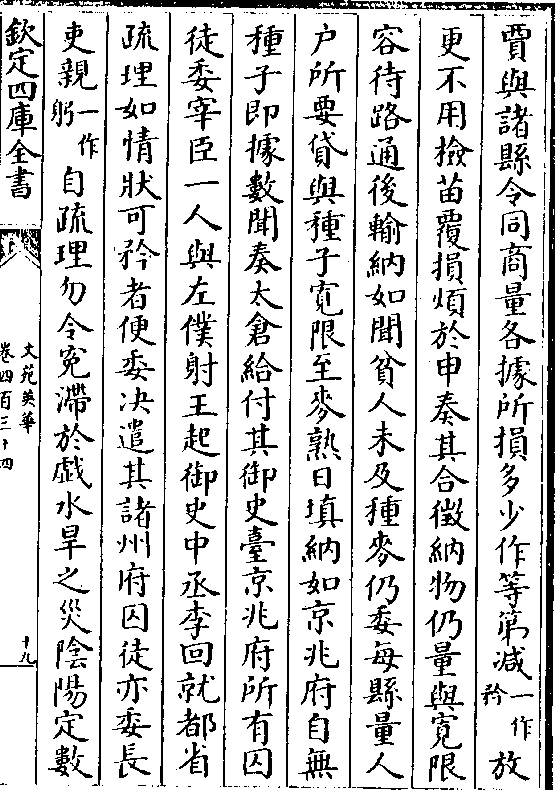 賈與諸縣令同商量各據所損多少作等第減一作矜放
更不用撿苗覆損煩於申奏其合徵納物仍量與寛限
容待路通後輸納如聞貧人未及種麥仍委每縣量人
户所要貸與種子寛限至麥熟日填納如京兆府自無
種子即據數聞奏太倉給付其御史臺京兆府所有囚
徒委宰臣一人與左僕射王起御史中丞李回就都省
疏理如情狀可矜者便委决遣其諸州府囚徒亦委長
吏親一作躬自疏理勿令寃滯於戯水旱之災陰陽定數
欽定四庫全書
文苑英華
卷四百三十四
十九